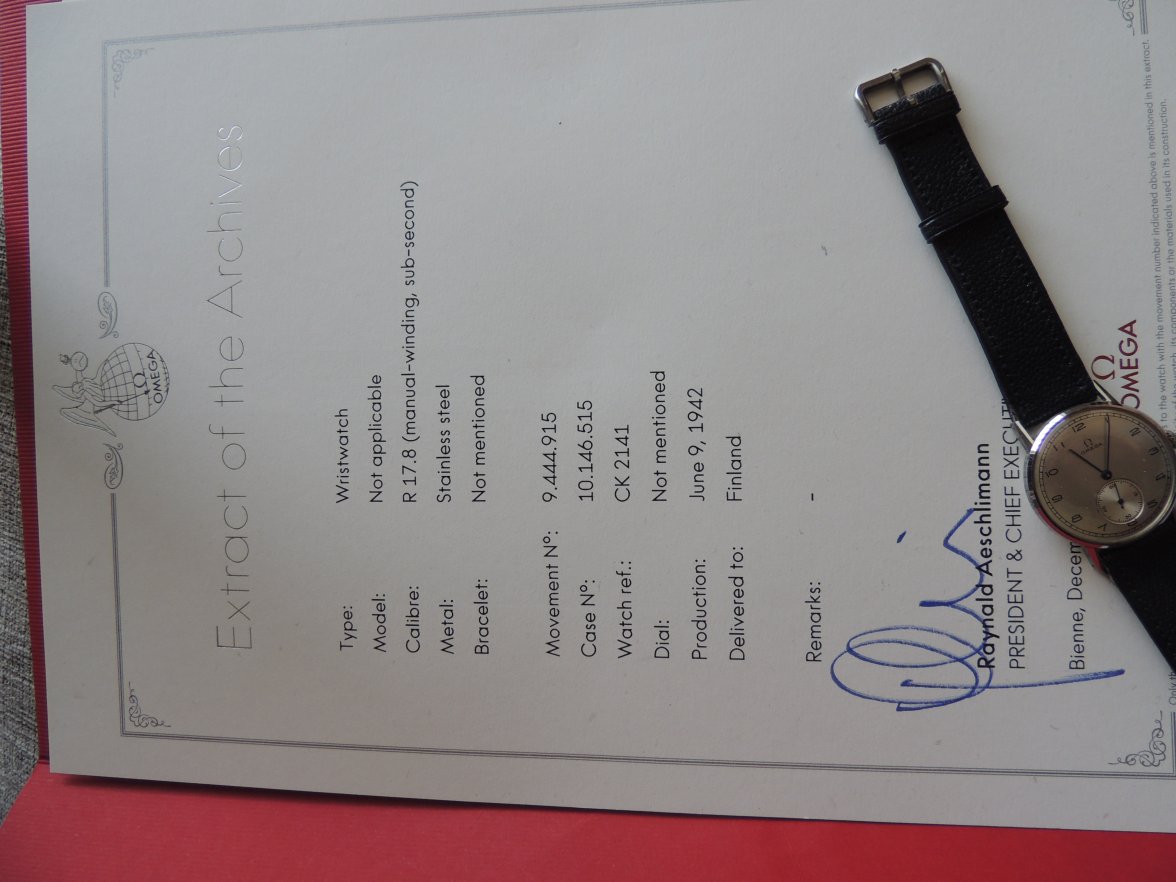 Ω
OMEGA
Extract of the Archives
Type: Wristwatch
Model: Not applicable
Calibre: R 17.8 (manual-winding, sub-second)
Metal: Stainless steel
Bracelet: Not mentioned
Movement Nº: 9.444.915
Case Nº: 10.146.515
Watch ref.: CK 2141
Dial: Not mentioned
Production: June 9, 1942
Delivered to: Finland
Remarks: -
Raynald Aeschlimann
PRESIDENT & CHIEF
Bienne,
Ω
OMEGA
12
Ω
OMEGA
to the watch with the movement number indicated above is mentioned in this extract.
of the watch, its components or the materials used in its construction.